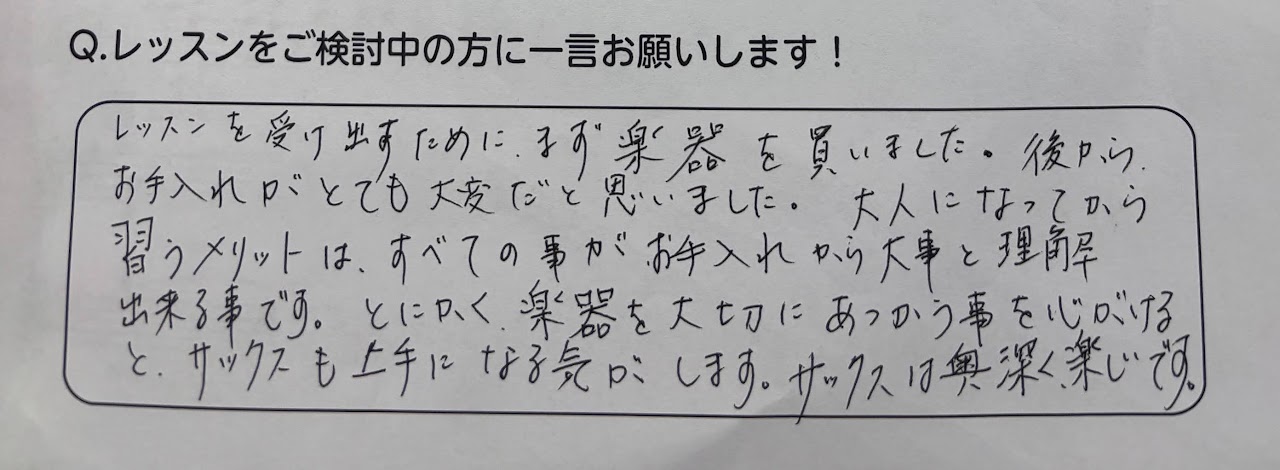 Q.レッスンをご検討中の方に一言お願いします！
レッスンを受け出すために、まず楽器を買いました。後から、
お手入れがとても大変だと思いました。大人になってから
習うメリットは、すべての事がお手入れから大事と理解
出来る事です。とにかく、楽器を大切にあつかう事を心がける
と、サックスも上手になる気がします。サックスは奥深く、楽しいです。